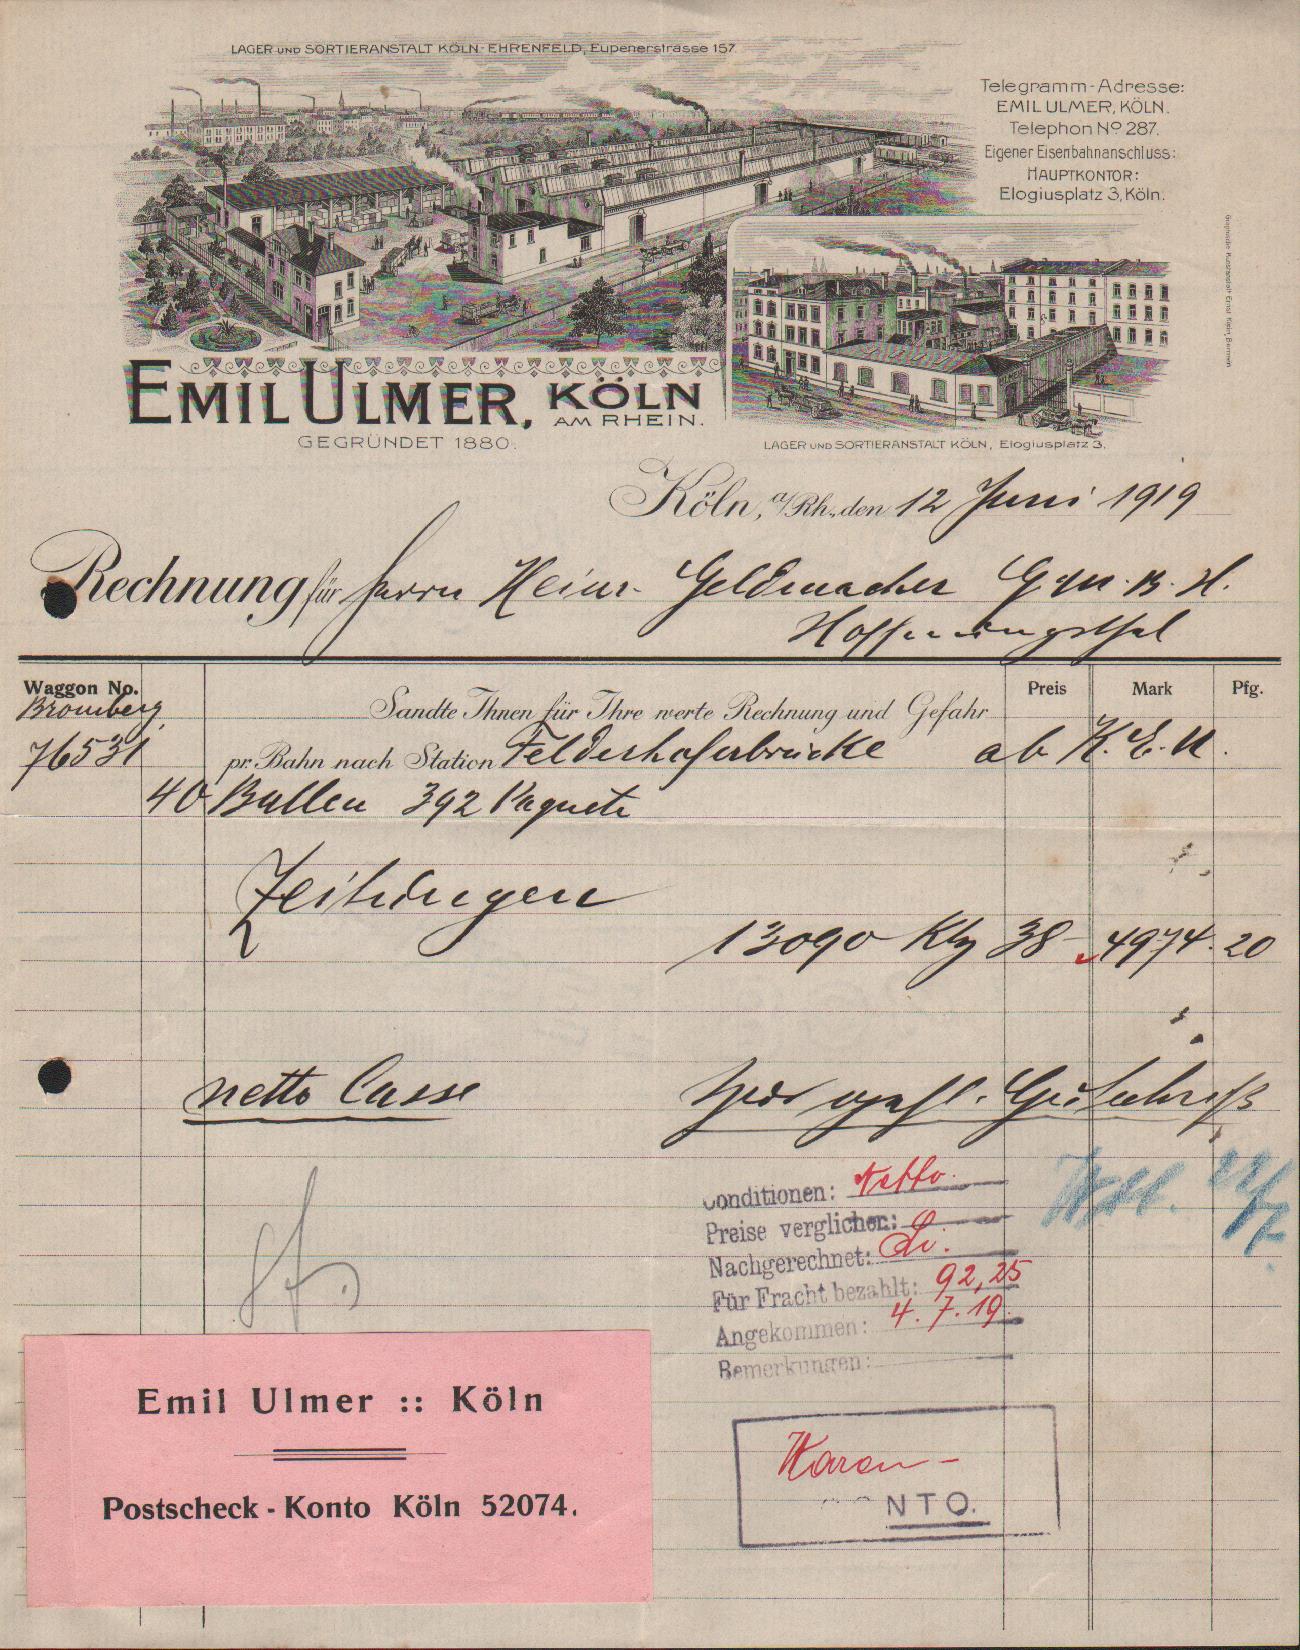 LAGER UND SORTIERANSTALT KÖLN-EHRENFELD, Eupenerstrasse 157.
Telegramm-Adresse:
EMIL ULMER, KÖLN.
Telephon No 287.
Eigener Eisenbahnanschluss:
HAUPTKONTOR:
Elogiusplatz 3, Köln.
Graphische Kunstanstalt Ernst Klein, Barmen
EMIL ULMER, KÖLN
AM RHEIN.
GEGRÜNDET 1880.
LAGER UND SORTIERANSTALT KÖLN, Elogiusplatz 3.
Köln, a/Rh., den 12 Juni 1919
Rechnung für Herrn Heinr. Geldmacher G.m.B.H.
Hoffnungsthal
Waggon No. Preis Mark Pfg.
Bromberg Sandte Ihnen für Ihre werte Rechnung und Gefahr
76531 pr. Bahn nach Station Felderhoferbrücke ab K.E.N.
40 Ballen 392 Paquete
Zeitungen
13090 Klg 38 4974.20
netto Casse
Conditionen: Netto.
Preise verglichen:
Nachgerechnet:
Für Fracht bezahlt: 92,25
Angekommen: 4.7.19.
Bemerkungen:
22/7
Emil Ulmer :: Köln
Postscheck-Konto Köln 52074.
Waren-
NTO.